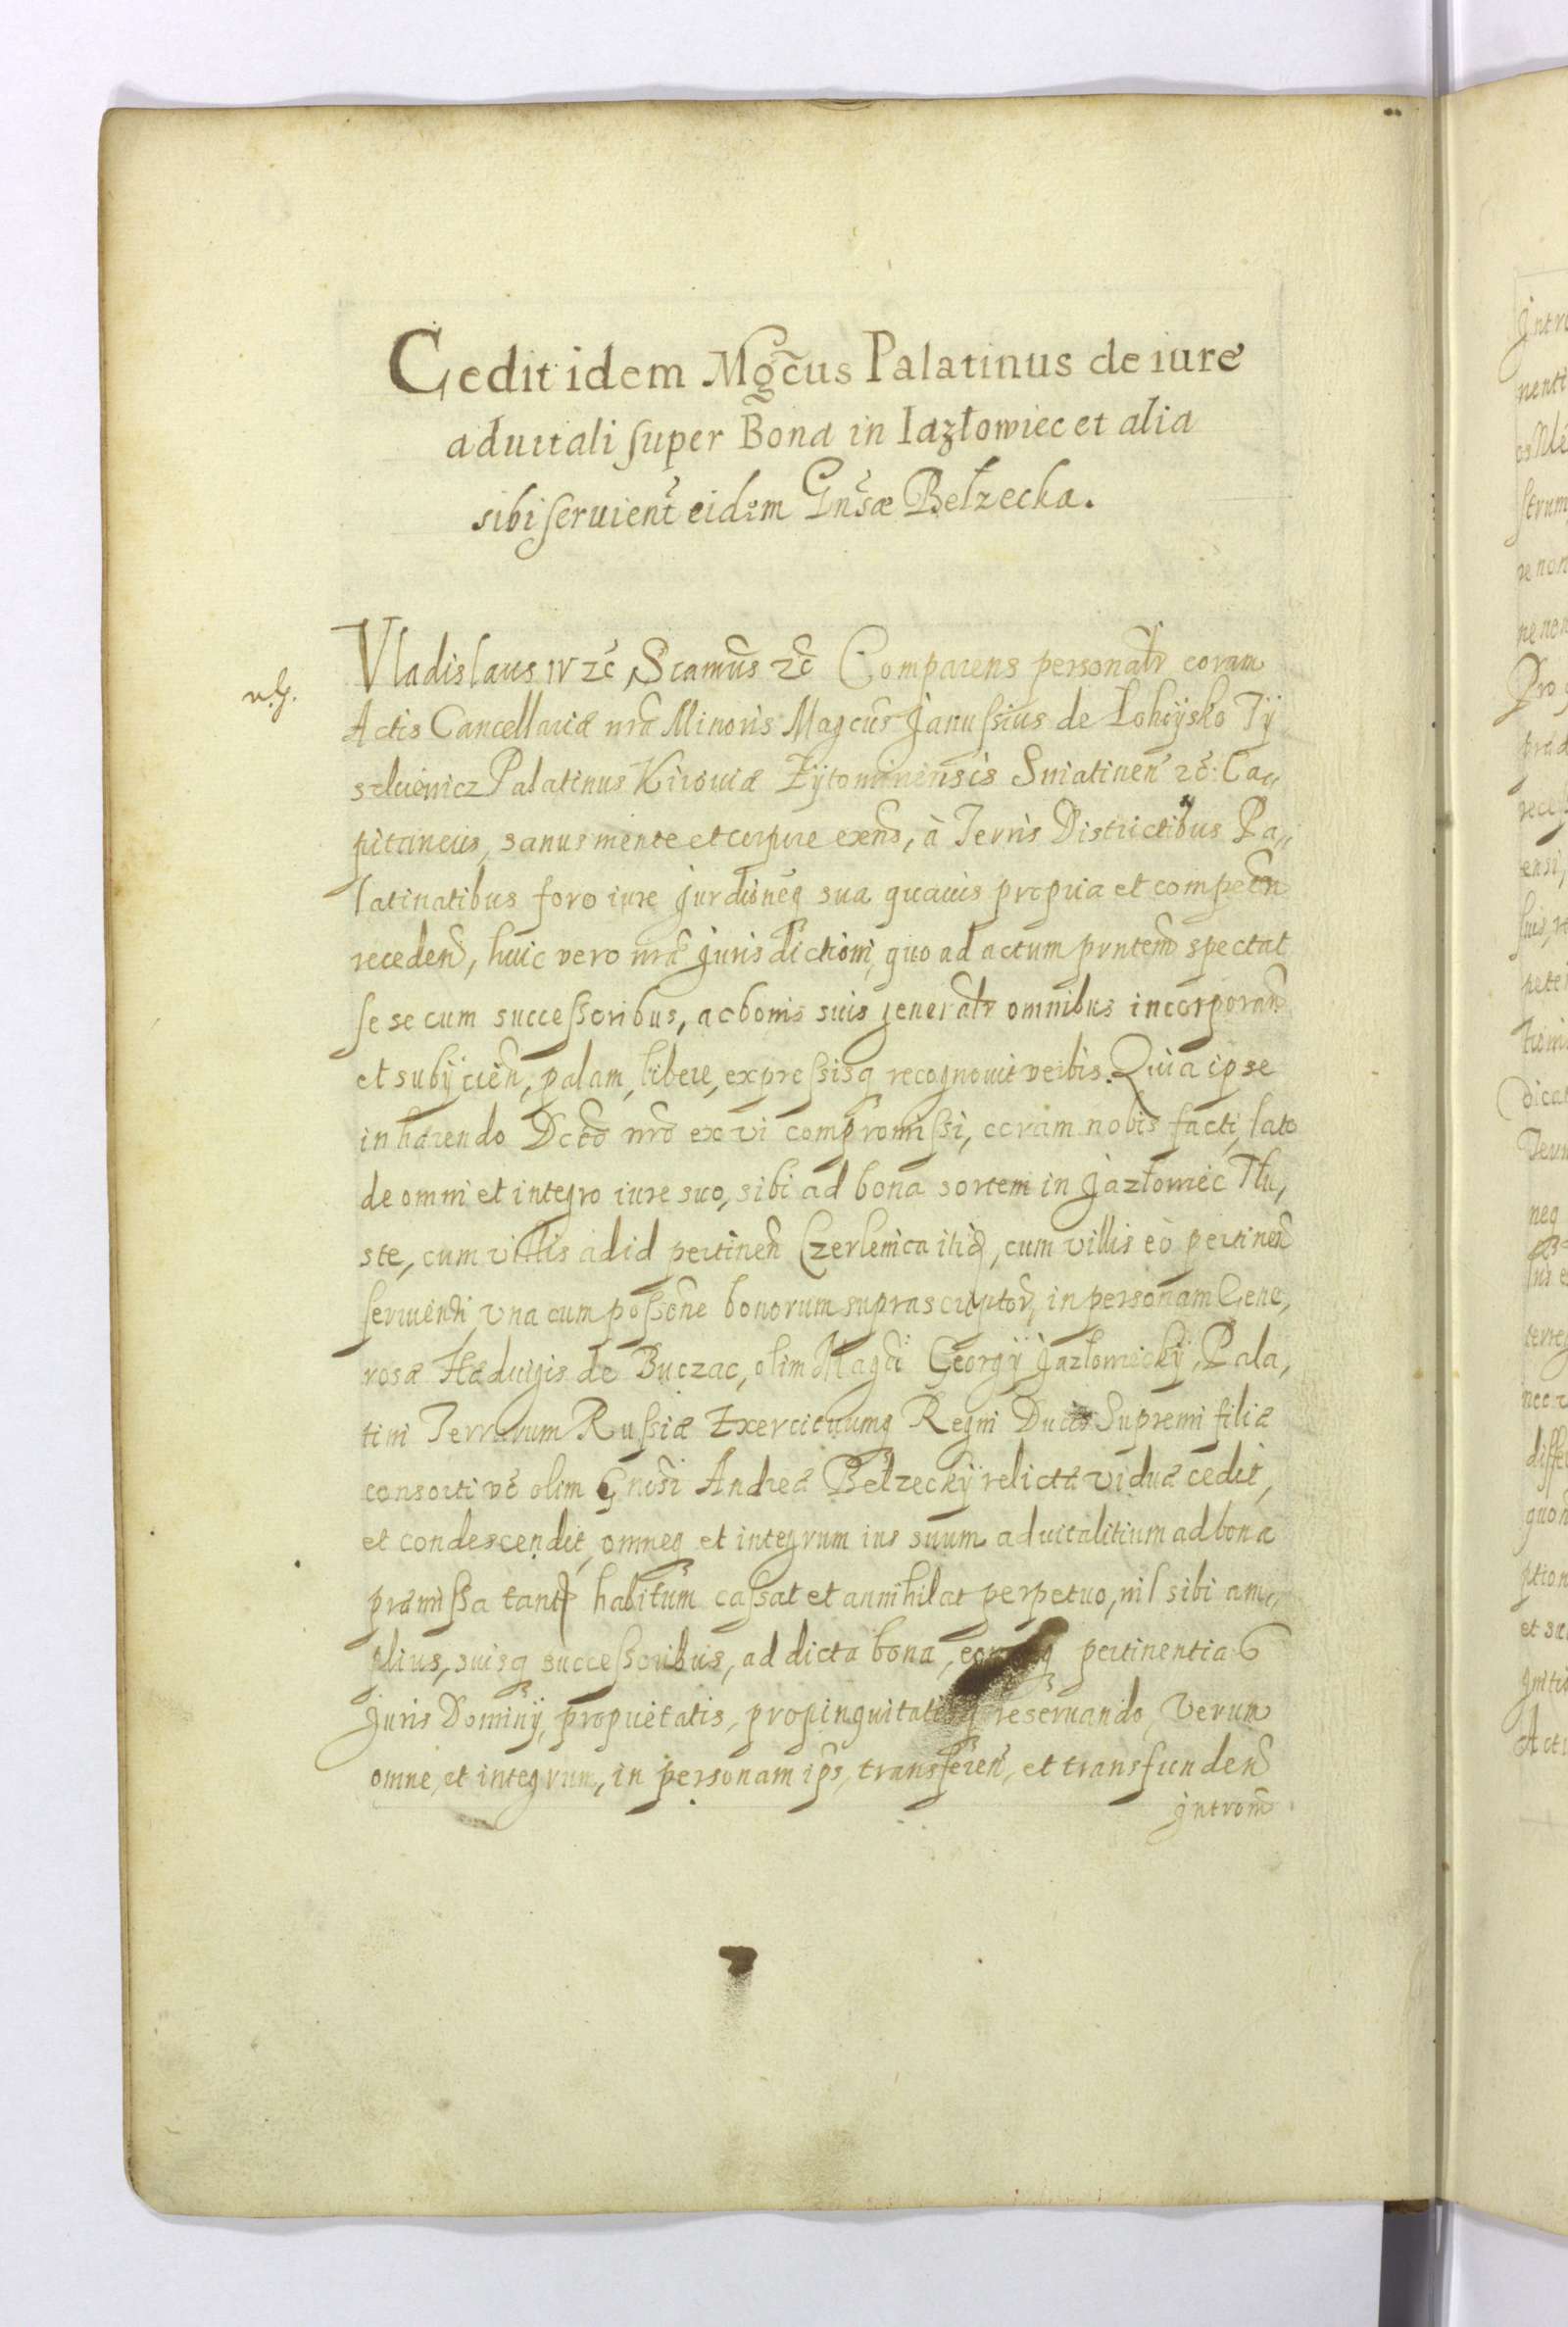 Cedit idem Mgc̃us Palatinus de iure
aduitali super Bona in Iazłowiec et alia
sibi seruien̄t eidem Gn̄sæ Bełzecka.
Vladislaus IV zc̃ Scam̃us zc̃ Comparens personalr̃ coram
Actis Cancellariæ nrã Minoris Magcus̃ Janussius de Łohoÿsko Tÿ
szkiewicz Palatinus Kiiouiæ Żÿtomiriensis Sniatinen̄ zc̃: Ca„
pitaneus, sanus mente et corpore exens̃, à Terris Districtibus Pa„
latinatibus foro iure Jurdionẽq sua quauis propria et competẽn
recedeñ, huic vero nrã Jurisdictioni, quo ad actum pnñtem spectat
se se cum successoribus, ac bonis suis generalr̃ omnibus incorporañ
et subijcieñ, palam, libere, expressisq recognouit verbis. Quia ipse
inhærendo Dctõ nrõ ex vi compromissi, coram nobis facti, lato
de omni et integro iure suo, sibi ad bona sortem in Jazłowiec Tłu,
ste, cum villis ad id pertineñ Czerlenica itid, cum villis eò pertineñ
seruienti, vna cum possõne bonorum suprascriptor̃, in personam Gene,
rosæ Hæduigis de Buczac, olim Magci Georgÿ Jazłowieckÿ, Pala,
tini Terrarum Russiæ Exercituumq Regni Ducis Supremi filiæ
consorti vẽ olim Gnõsi Andreæ Bełzeckÿ relictæ viduæ cedit,
et condescendit, omneq et integrum ius suum aduitalitium ad bona
præmissa habitum cassat et annihilat perpetuo, nil sibi am„
plius, suisq successoribus, ad dicta bona, pertinentia
Juris Dominÿ, proprietatis, propinquitatisq reseruando, Verum
omne, et integrum, in personam ips, transfereñ, et transfundeñ
Introm̃